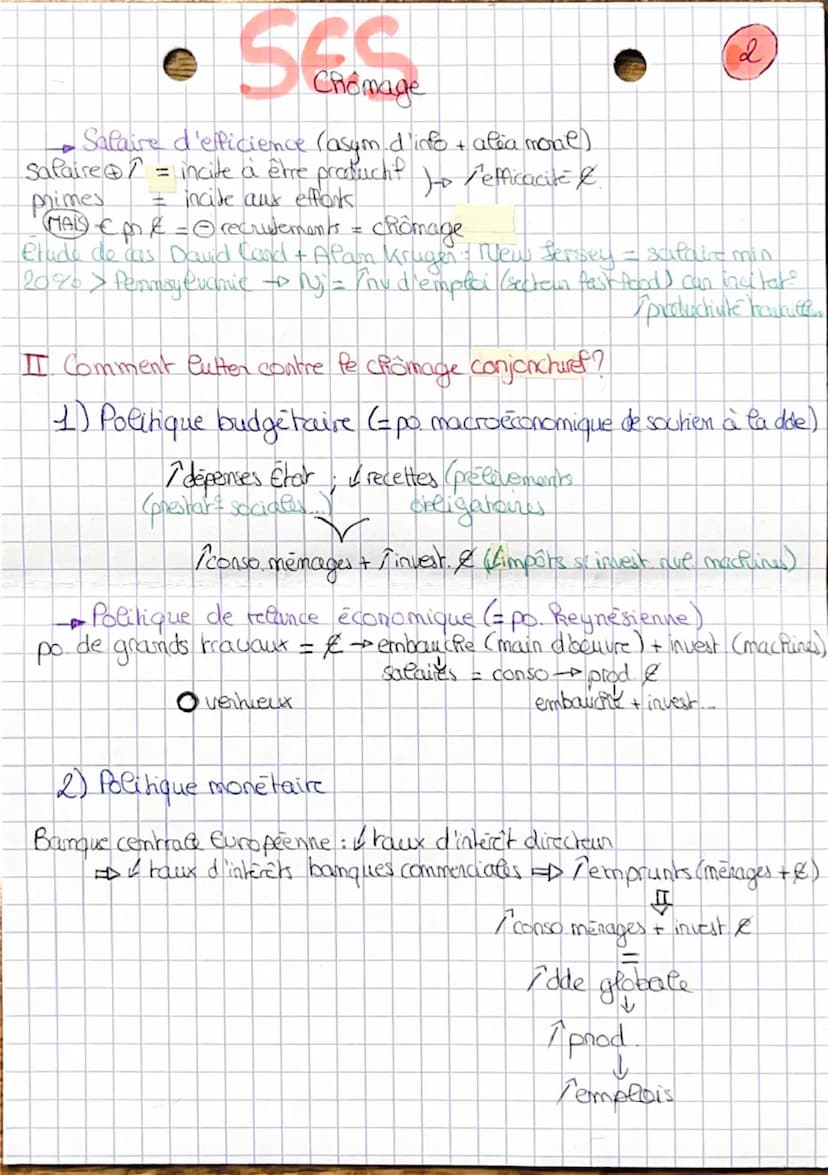 SES
2
Chômage
→ Salaire d'efficience (asym. d'info + aléa moral)
salaire ⊕ ↑ = incite à être productif → ↑ efficacité E̸
primes = incite aux efforts
MAIS € pr E̸ = ⊖ recrutements = chômage
Étude de cas David Card + Alam Kruger : New Jersey = salaire min
20% > Pennsylvanie → Nj = ↑ nv d'emploi (secteur fast food) car incitat°
↑ productivité travaill.
II Comment lutter contre le chômage conjoncturel?
1) Politique budgétaire (= po. macroéconomique de soutien à la dde)
↑ dépenses État ; ↓ recettes (prélèvements
(prestat° sociales...) obligatoires
↑ conso. ménages + ↑ invest. E̸ (↓ impôts si invest nvl machines)
→ Politique de relance économique (= po. Keynésienne)
po de grands travaux = E̸ → embauche (main d'œuvre) + invest (machines)
↓
salaires = conso → prod. E̸
O vertueux embauche + invest...
2) Politique monétaire
Banque centrale Européenne : ↓ taux d'intérêt directeur
⇒ ↓ taux d'intérêts banques commerciales ⇒ ↑ emprunts (ménages + E̸)
⇓
↑ conso. ménages + invest E̸
=
↑ dde globale
↓
↑ prod.
↓
↑ emplois